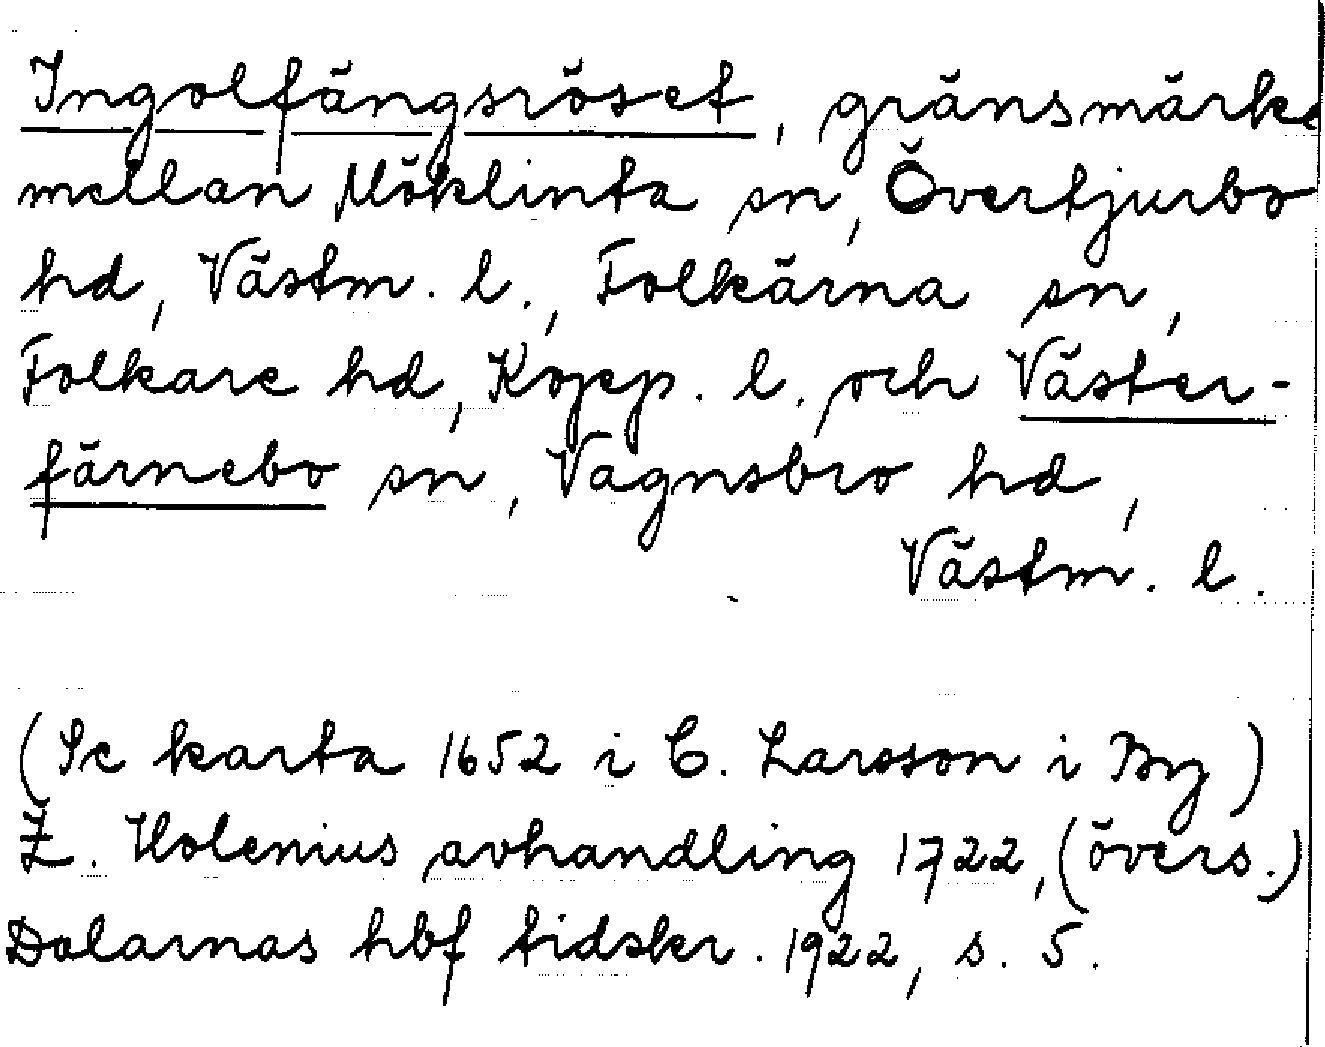 Ingolfängsröset, gränsmärke
mellan Möklinta sn, Övertjurbo
hd, Västm. l., Folkärna sn,
Folkare hd, Kopp. l. och Väster-
färnebo sn, Vagnsbro hd,
Västm. l.
(Se karta 1652 i C. Larsson i By)
Z. Holenius avhandling 1722, (övers.)
Dalarnas hbf tidskr. 1922, s. 5.